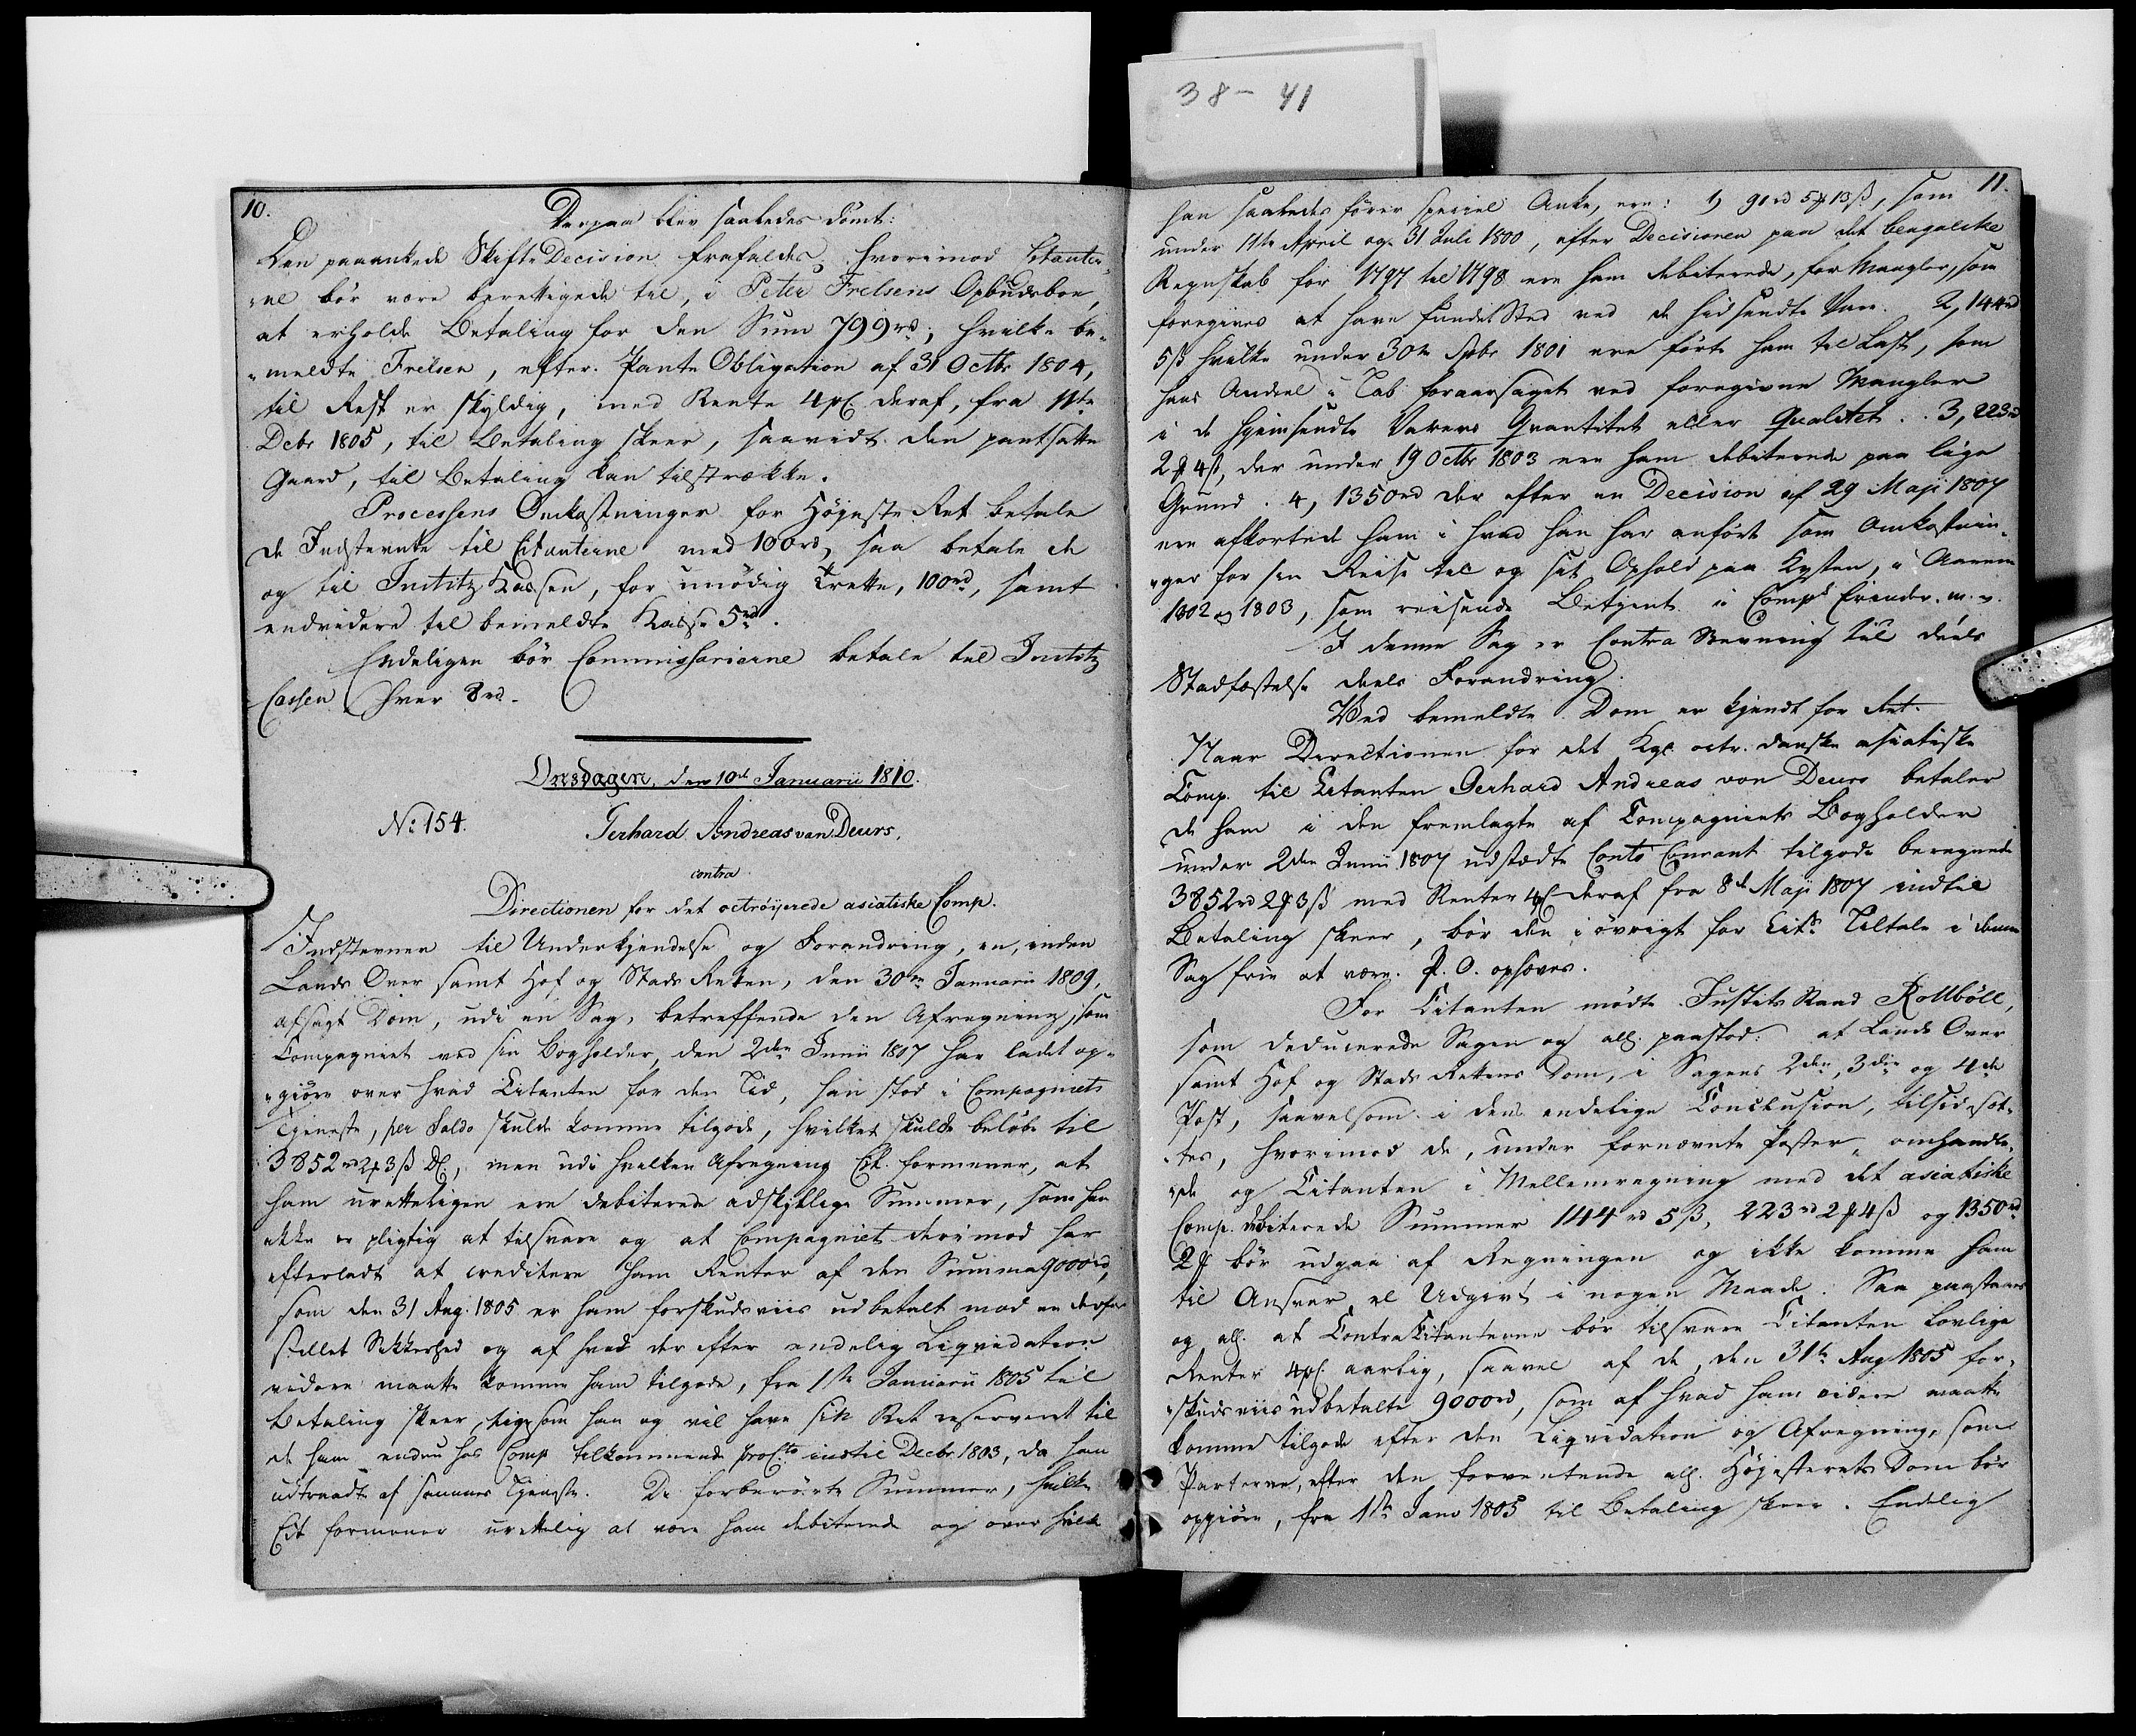 38-41
10.
Derpaa blev saaledes dömt:
Den paaankede Skifte Decision frafaldes, hvorimod Citanter-
"ne bör være berettigede til, i Peter Frelsens Opbudsboe,
at erholde Betaling for den Sum 799rd, hvilke be-
"meldte Frelsen, efter Pante Obligation af 31 Octbr 1804,
til Rest er skyldig, med Rente 4pC. deraf, fra 11te
Debr 1805, til Betaling skeer, saavidt den pantsatte
Gaard, til Betaling kan tilstrække.
Processens Omkostninger for Höjeste Ret betale
de Indstevnte til Citanterne med 100rd, saa betale de
og til Justitz Kassen, for unödig Trætte, 100rd, samt
endvidere til bemeldte Kasse 5rd.
Endeligen bör Commissarierne betale til Justitz
Cassen hver 8rd.
Onsdagen, den 10de Januarii 1810.
No 154. Gerhard Andreas van Deurs,
contra
Directionen for det octröyerede asiatiske Comp.
Indstevner til Underkjendelse og Forandring, en, inden
Lands Over samt Hof og Stads Retten, den 30te Januarii 1809,
afsagt Dom, udi en Sag, betreffende den Afregning, som
Compagniet ved sin Bogholder, den 2den Junii 1807 har ladet op-
"giöre over hvad Citanten for den Tid, han stod i Compagniets
Tjeneste, per Saldo skulde komme tilgode, hvilket skulde belöbe til
3852rd 2# 3ß DC, men udi hvilken Afregning Cit. formener, at
ham urettelige ere debiterede adskillige Summer, som han
ikke er pligtig at tilsvare og at Compagniet derimod har
efterladt at creditere ham Renter af den Summa 9000rd,
som den 31 Aug. 1805 er ham forskudsviis udbetalt mod en derfor
stillet Sikkerhed og af hvad der efter endelig Liqvidation
videre maatte komme ham tilgode, fra 1ste Januarii 1805 til
Betaling skeer, ligesom han og vil have sin Ret reserveret til
de ham endnu hos Comp tilkommende proCto indtil Decbr 1803, da han
udtraadte af sammes Tjeneste. De forberörte Summer, hvilke
Cit formener urettelig at være ham debiterede og over hvilke
11.
han saaledes förer speciel Anke, ere: 1, 91rd 5# 13ß, som
under 11te April og 31 Juli 1800, efter Decisionen paa det bengalske
Regnskab for 1797 til 1798 ere ham debiterede, for Mangler, som
foregives at have fundet Sted ved de hidsendte Varer. 2, 144rd
5ß hvilke under 30te Spbr 1801 ere förte ham til Last, som
hans Andeel i Tab foraarsaget ved foregivne Mangler
i de hjemsendte Varers Qvantitet eller Qualitet. 3, 223rd
2# 4ß, der under 19 Octbr 1803 ere ham debiterede paa lige
Grund. 4, 1350rd der efter en Decision af 29 Maji 1807
ere afkortede ham i hvad han har anfört som Omkostnin-
"ger for sin Reise til og sit Ophold paa Kysten, i Aarene
1802 og 1803, som reisende Betjent i Comps Erinder. m. v.
I denne Sag er Contra Stevning til deels
Stadfæstelse deels Forandring.
Ved bemeldte Dom er kjendt for Ret.
Naar Directionen for det Kgl. octr. danske asiatiske
Comp. til Citanten Gerhard Andreas von Deurs betaler
de ham i den fremlagte af Compagniets Bogholder
under 2den Junii 1807 udstædte Conto Courant tilgode beregnede
3852rd 2# 3ß med Renter 4pC deraf fra 8de Maji 1807 indtil
Betaling skeer, bör den i övrigt for Cits Tiltale i denne
Sag frie at være. P. O. ophæves.
For Citanten mödte Justits Raad Rottböll,
som deducerede Sagen og all. paastod: at Lands Over
samt Hof og Stads Rettens Dom, i Sagens 2den, 3die og 4de
Post, saavelsom i dens endelige Conclusion, tilsidesæt-
"tes, hvorimod de, under fornævnte Poster, omhandle-
"de og Citanten i Mellemregning med det asiatiske
Comp. debiterede Summer 144rd 5ß, 223rd 2# 4ß og 1350rd
2# bör udgaae af Regningen og ikke komme ham
til Ansvar el Udgivt i nogen Maade. Saa paastaaes
og all. at Contra Citanterne bör tilsvare Citanten lovlige
Renter 4pC. aarlig, saavel af de, den 31te Aug 1805 for-
"skudsviis udbetalte 9000rd, som af hvad ham videre maatte
komme tilgode efter den Liqvidation og Afregning, som
Parterne, efter den forventende all. Höjesterets Dom bör
opgiöre, fra 1ste Janv 1805 til Betaling skeer. Endelig